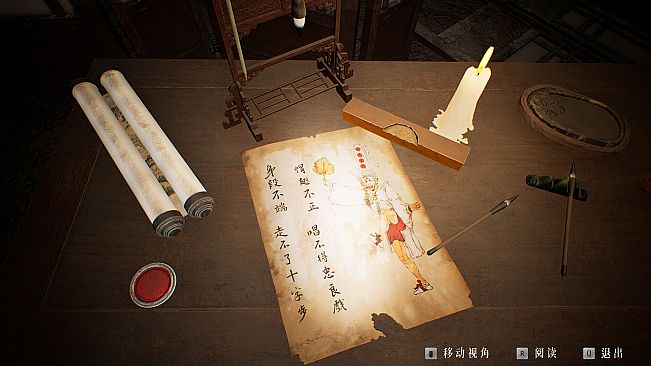 帽翅不正 唱不得忠良戏
身段不端 走不了十字步
移动视角
R 阅读
Q 退出